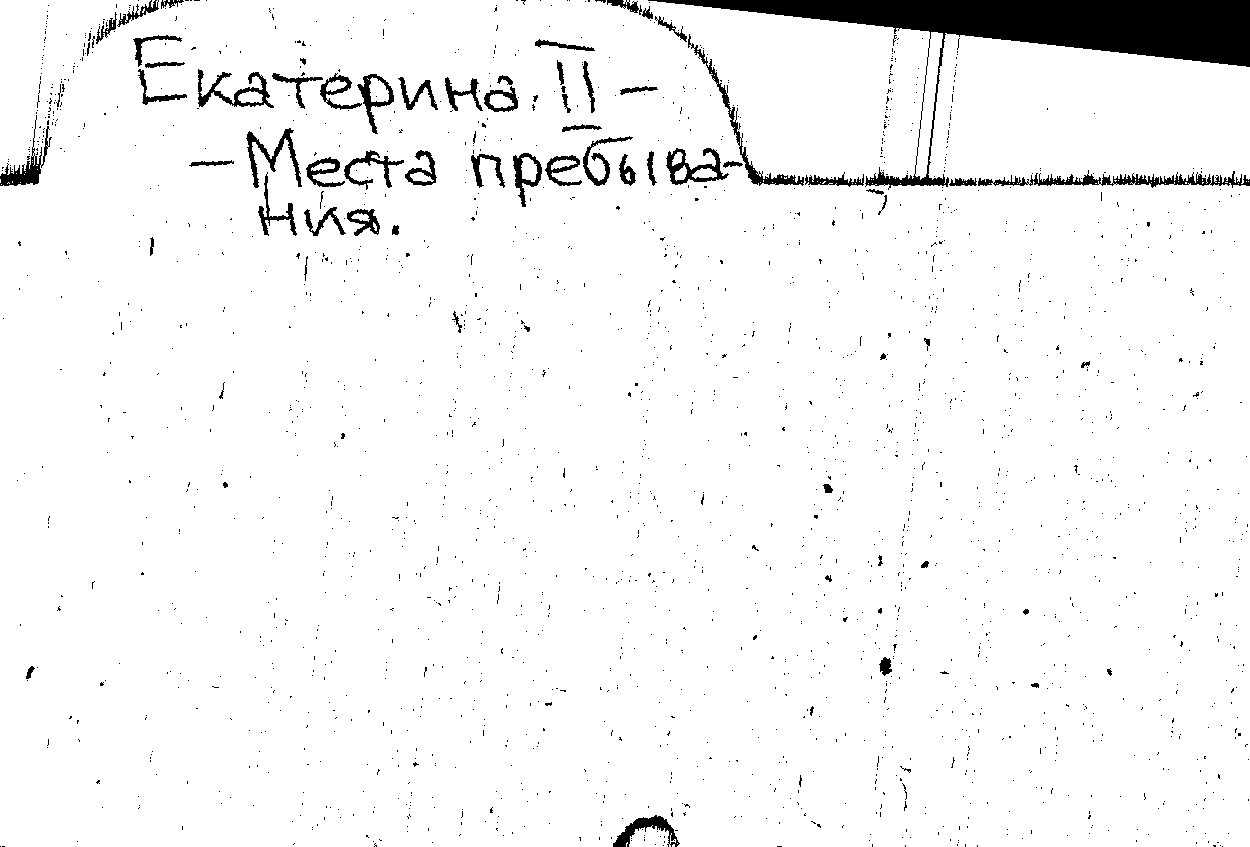 Екатерина II -
- Места пребыва-
ния.